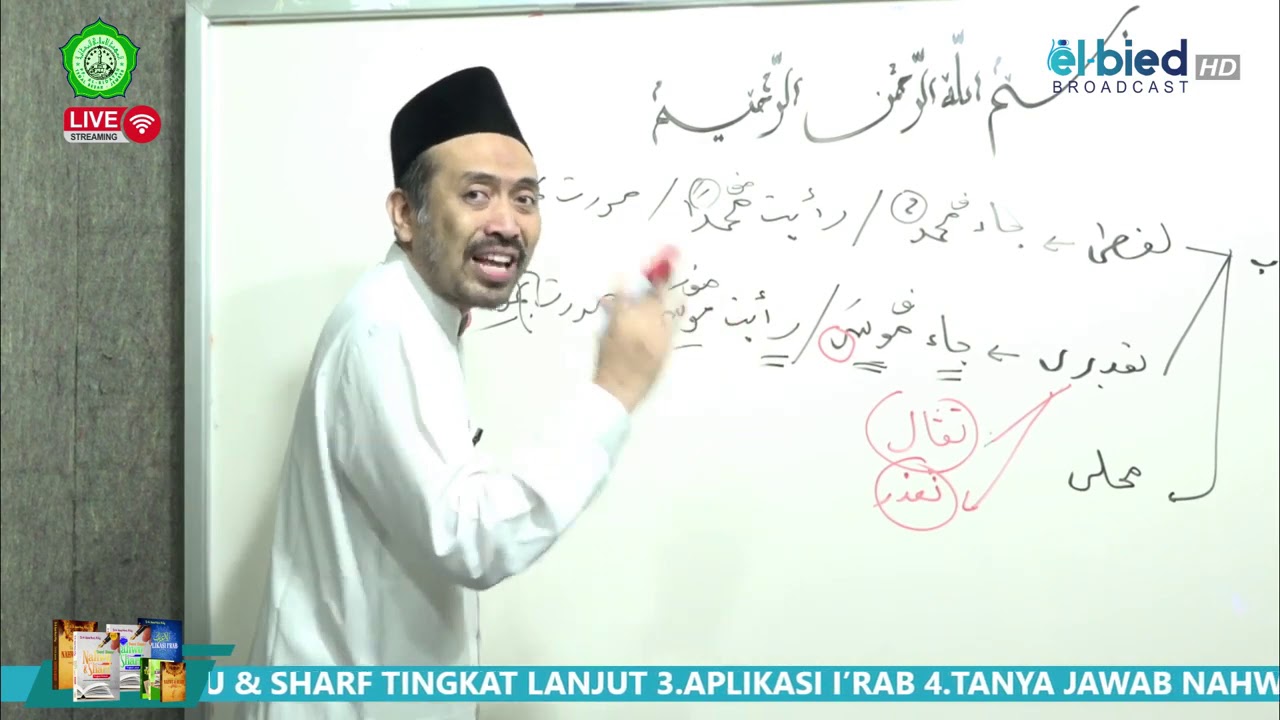 LIVE
STREAMING
elbied HD
BROADCAST
بسم الله الرحمن الرحيم
لفظى ← جاء محمد / رأيت محمدا / مررت
تقديرى ← جاء موسى / رأيت موسى مررت
ثقال
تعذر
محلى
U & SHARF TINGKAT LANJUT 3.APLIKASI I'RAB 4.TANYA JAWAB NAHW